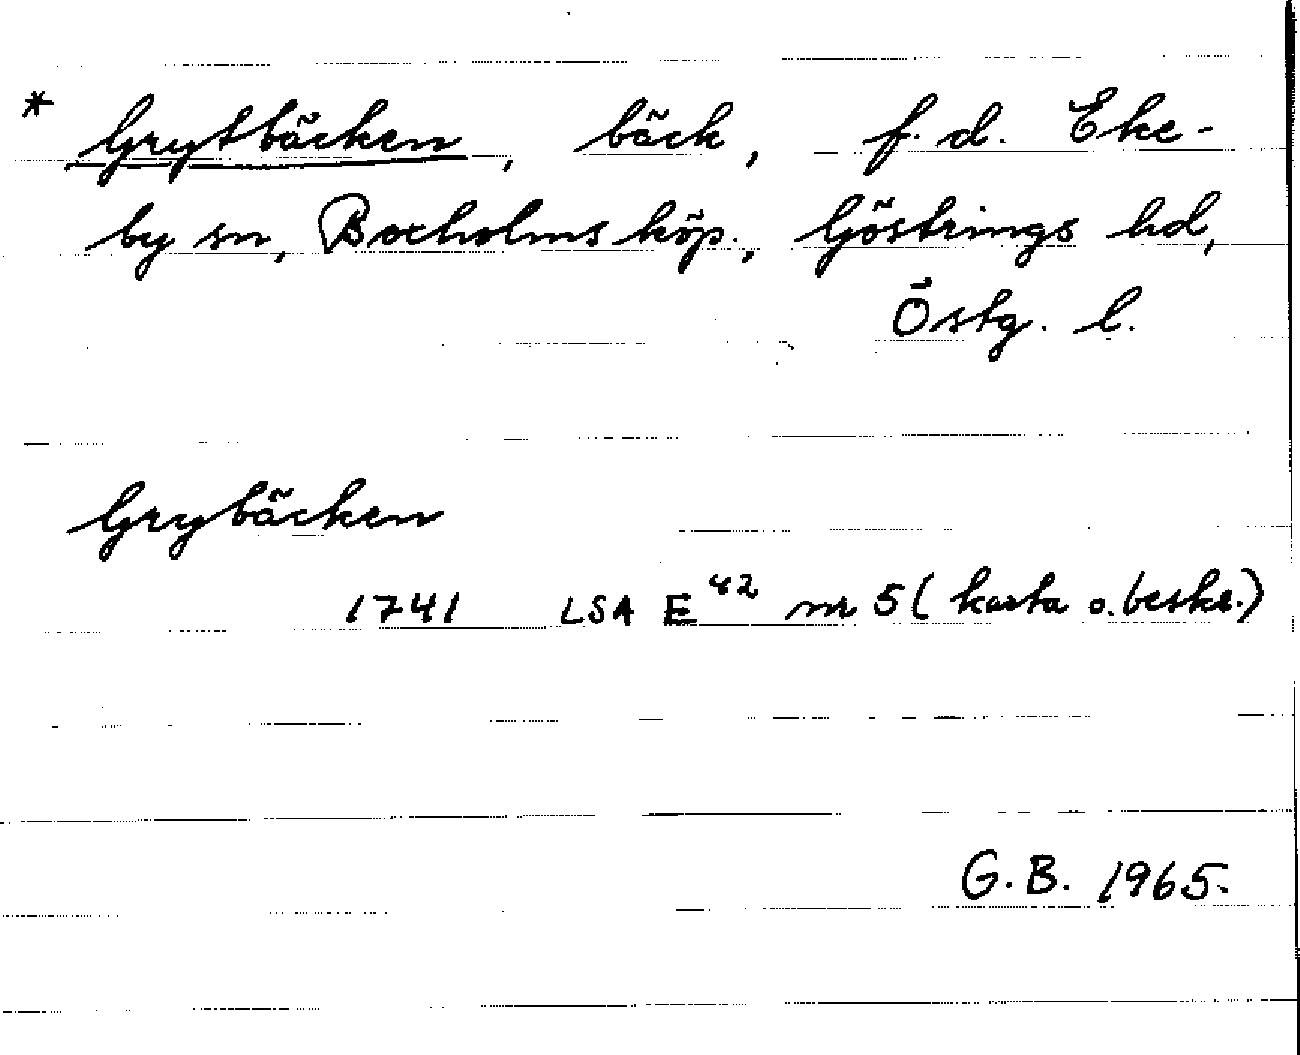 * Grytbäcken, bäck, f. d. Eke-
by sn, Boxholms köp., Göstrings hd,
Östg. l.
Grybäcken
1741 LSA E 42 nr 5 (karta o. beskr.)
G.B. 1965.